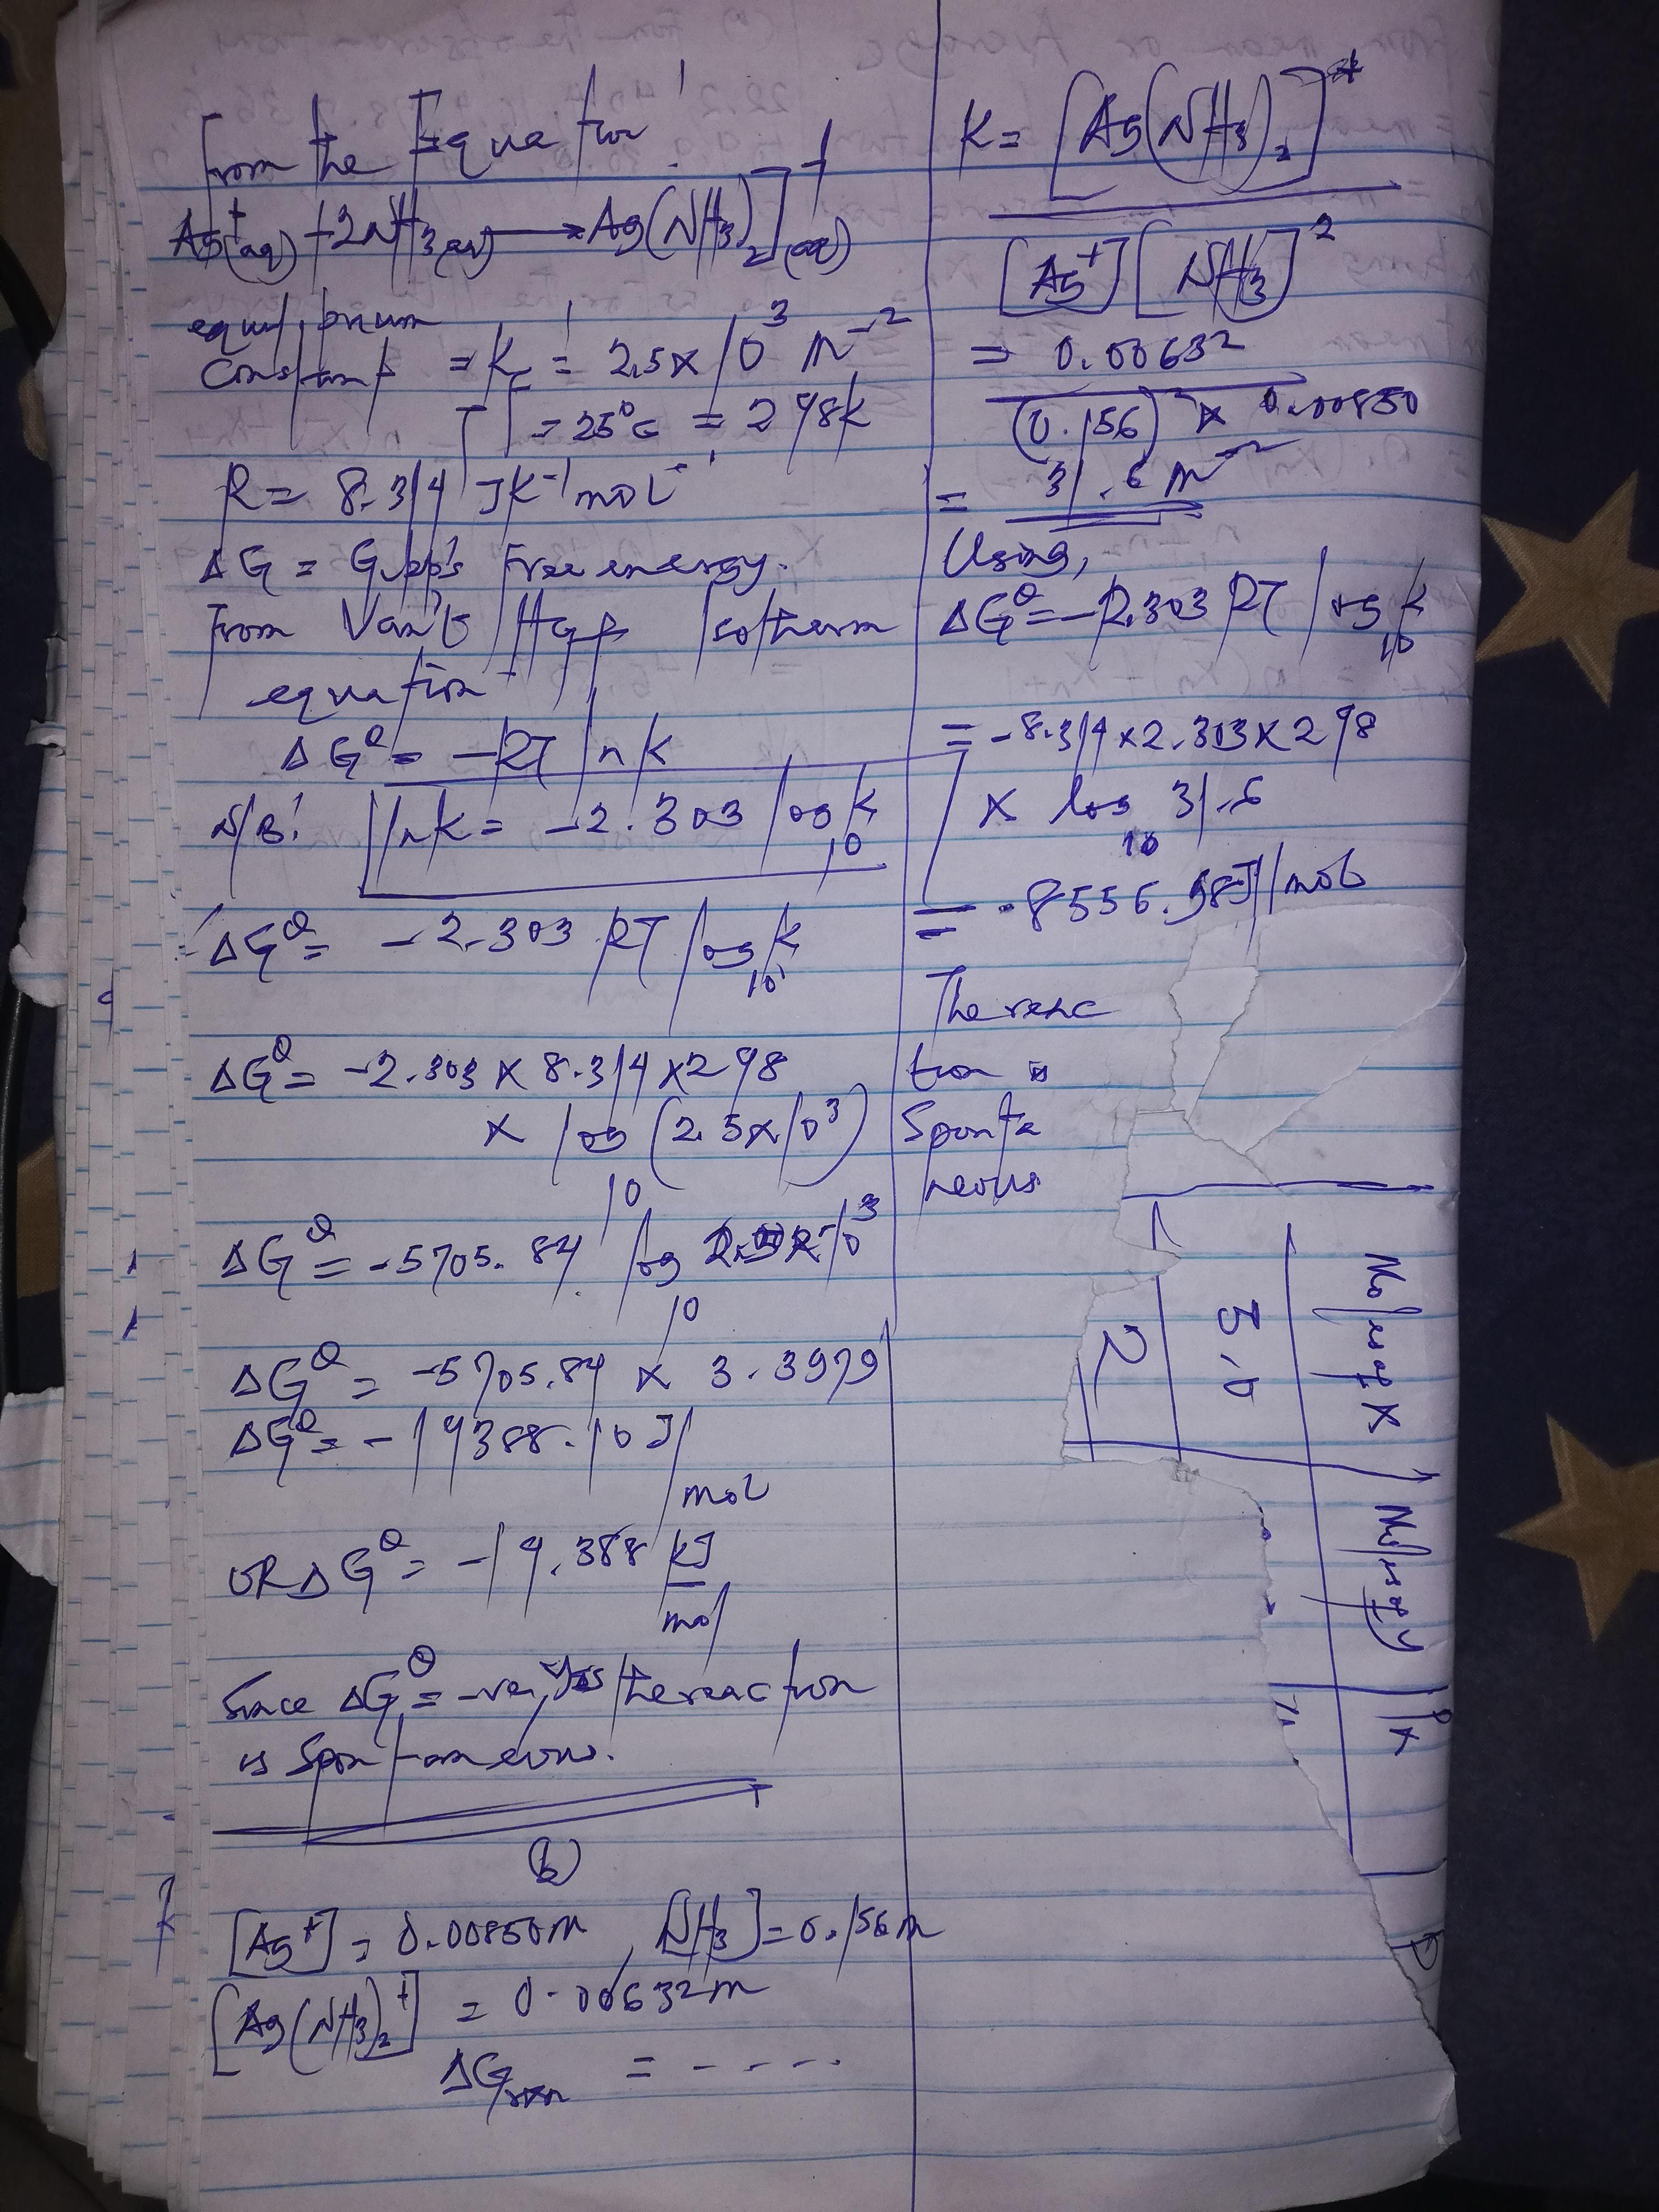 From the Equation.
Ag⁺(aq) + 2NH₃(aq) → Ag(NH₃)₂]⁺(aq)
equilibrium
Constant = K = 2.5 x 10³ M⁻²
T = 25°C = 298K
R = 8.314 JK⁻¹mol⁻¹
ΔG = Gibb's Free energy.
From Van't Hoff Isotherm
equation
ΔG° = -RT ln K
N/B: lnK = -2.303 log₁₀K
ΔG° = -2.303 RT log₁₀K
ΔG° = -2.303 x 8.314 x 298
x log₁₀ (2.5x10³)
ΔG° = -5705.84 log₁₀ 2.5x10³
ΔG° = -5705.84 x 3.3979
ΔG° = -19388.10 J/
mol
OR ΔG° = -19.388 kJ
mol
Since ΔG° = -ve, the reaction
is Spontaneous.
(b)
[Ag⁺] = 0.00850M, [NH₃] = 0.156M
[Ag(NH₃)₂⁺] = 0.00632M
ΔGrxn = ----
K = [Ag(NH₃)₂]⁺
[Ag⁺][NH₃]²
= 0.00632
(0.156)² x 0.00850
= 31.6 M⁻²
Using,
ΔG° = -2.303 RT log₁₀K
= -8.314 x 2.303 x 298
x log₁₀ 31.6
= -8556.98J/mol
The reac
tion is
Sponta
neous
Moles of X
3.0
2
Moles of Y